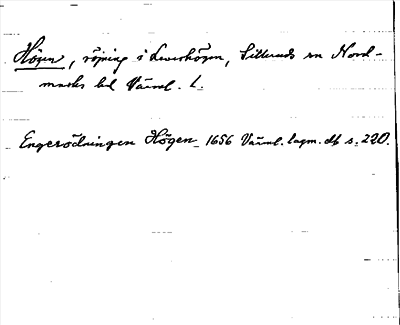 Högen, röjning i Leverhögen, Silleruds sn Nord-
marks hd Värml. l.
Engerödningen Högen 1656 Värml. lagm. db s. 220.